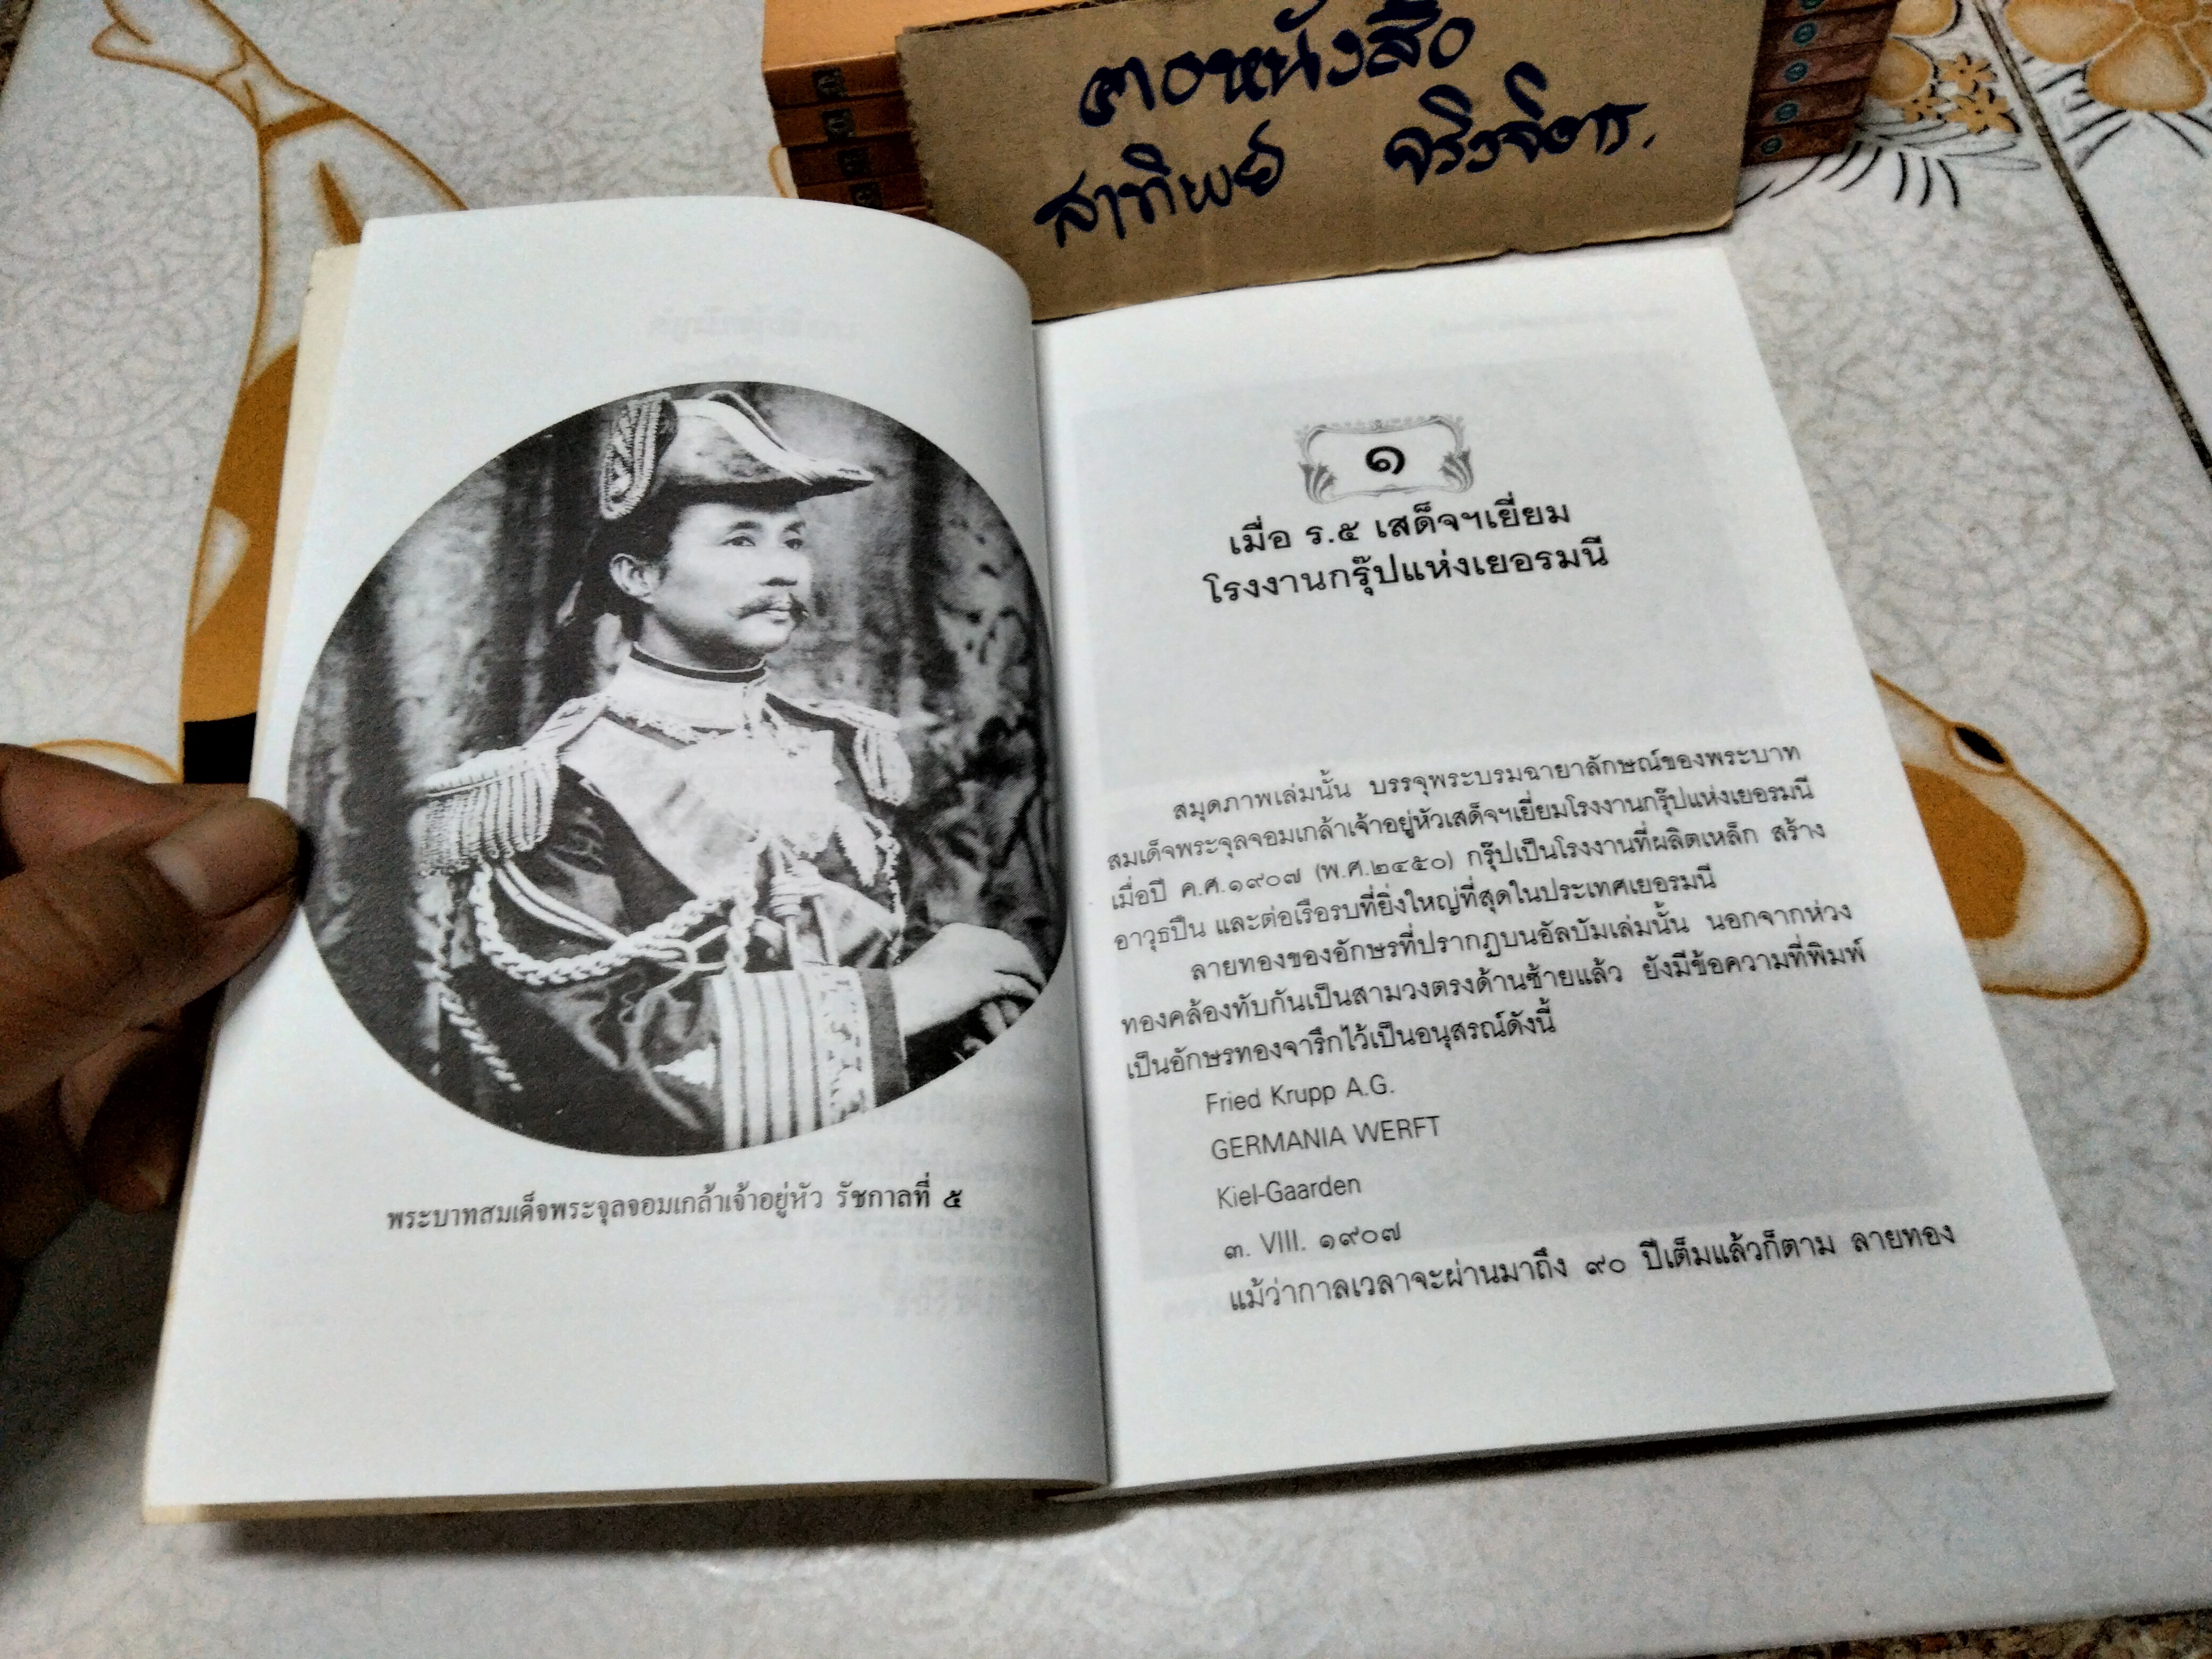 คอหนังสือ
สาทิพย์ จริงจิตร.
พระบาทสมเด็จพระจุลจอมเกล้าเจ้าอยู่หัว รัชกาลที่ ๕
๑
เมื่อ ร.๕ เสด็จฯเยี่ยม
โรงงานกรุ๊ปแห่งเยอรมนี
สมุดภาพเล่มนั้น บรรจุพระบรมฉายาลักษณ์ของพระบาท
สมเด็จพระจุลจอมเกล้าเจ้าอยู่หัวเสด็จฯเยี่ยมโรงงานกรุ๊ปแห่งเยอรมนี
เมื่อปี ค.ศ.๑๙๐๗ (พ.ศ.๒๔๕๐) กรุ๊ปเป็นโรงงานที่ผลิตเหล็ก สร้าง
อาวุธปืน และต่อเรือรบที่ยิ่งใหญ่ที่สุดในประเทศเยอรมนี
ลายทองของอักษรที่ปรากฏบนอัลบัมเล่มนั้น นอกจากห่วง
ทองคล้องทับกันเป็นสามวงตรงด้านซ้ายแล้ว ยังมีข้อความที่พิมพ์
เป็นอักษรทองจารึกไว้เป็นอนุสรณ์ดังนี้
Fried Krupp A.G.
GERMANIA WERFT
Kiel-Gaarden
๓. VIII. ๑๙๐๗
แม้ว่ากาลเวลาจะผ่านมาถึง ๙๐ ปีเต็มแล้วก็ตาม ลายทอง